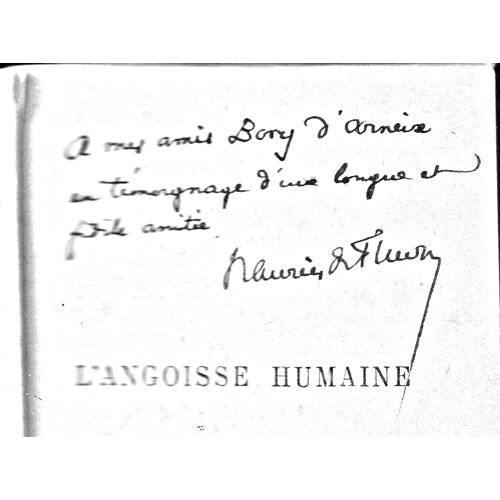 A mes amis Bory d'Arneix
en témoignage d'une longue et
fidèle amitié
Maurice de Fleury
L'ANGOISSE HUMAINE